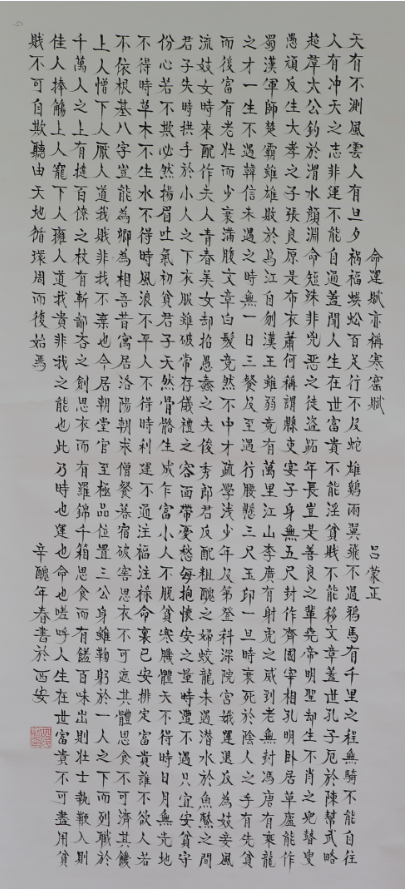 命運賦亦稱寒窰賦 呂蒙正
天有不測風雲人有旦夕禍福蜈蚣百足行不及蛇雄鷄兩翼飛不過鴉馬有千里之程無騎不能自往
人有冲天之志非運不能自通蓋聞人生在世富貴不能淫貧賤不能移文章蓋世孔子厄於陳幫武略
超羣太公釣於渭水顏淵命短殊非兇惡之徒盜跖年長豈是善良之輩堯帝明聖却生不肖之兒瞽叟
愚頑反生大孝之子張良原是布衣蕭何稱謂縣吏晏子身無五尺封作齊國宰相孔明臥居草廬能作
蜀漢軍師楚霸雖雄敗於烏江自刎漢王雖弱竟有萬里江山李廣有射虎之威到老無封馮唐有乘龍
之才一生不遇韓信未遇之時無一日三餐及至遇行腰懸三尺玉印一旦時衰死於陰人之手有先貧
而後富有老壯而少衰滿腹文章白髮竟然不中才疏學淺少年及第登科深院宮娥運退反為妓妾風
流妓女時來配作夫人青春美女却招愚蠢之夫俊秀郎君反配粗醜之婦蛟龍未遇潛水於魚鱉之間
君子失時拱手於小人之下衣服雖破常存儀禮之容面帶憂愁每抱懷安之量時遭不遇只宜安貧守
份心若不欺必然揚眉吐氣初貧君子天然骨骼生成乍富小人不脫貧寒肌體天不得時日月無光地
不得時草木不生水不得時風浪不平人不得時利運不通注福注祿命裏已安排定富貴誰不欲人若
不依根基八字豈能為卿為相吾昔寓居洛陽朝求僧餐暮宿破窰思衣不可遮其體思食不可濟其饑
上人憎下人厭人道我賤非我不棄也今居朝堂官至極品位置三公身雖鞠躬於一人之下而列職於
千萬人之上有撻百僚之杖有斬鄙吝之劍思衣而有羅錦千箱思食而有饈百味出則壯士執鞭入則
佳人捧觴上人寵下人擁人道我貴非我之能也此乃時也運也命也嗟呼人生在世富貴不可盡用貧
賤不可自欺聽由天地循環周而復始焉
辛醜年春書於西安